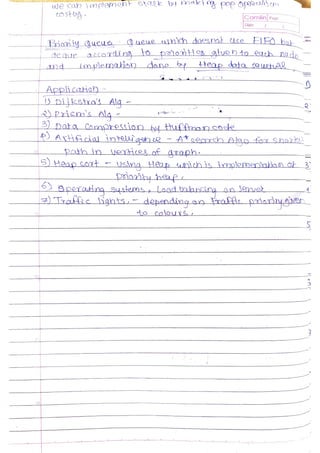 we can implement stack by making pop operation
costly.
Camlin Page
Date / /
Priority queue queue which does not use FIFO but
according to priorities given to each node
and implementation done by Heap data
Application -
1) Dijkstra's Alg -
2) Priem's Alg -
3) Data Compression by Huffman code
4) Artificial intelligence - A* search Algo for short
path in vertices of graph.
5) Heap sort - using Heap which is implementation of
Priority heap.
6) Operating systems, Load balancing on server
7) Traffic lights, - depending on traffic priority given
to colours.